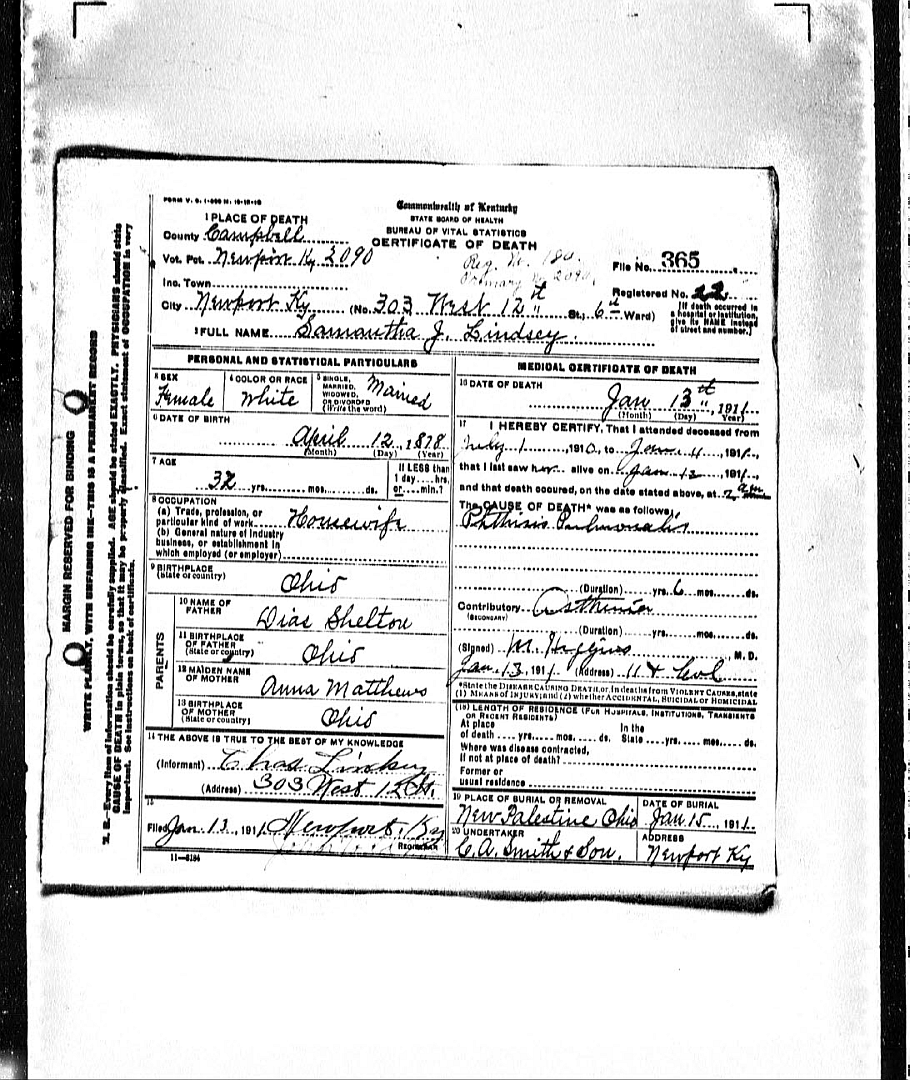 FORM V. S. 1-
Commonwealth of Kentucky
STATE BOARD OF HEALTH
BUREAU OF VITAL STATISTICS
CERTIFICATE OF DEATH
1 PLACE OF DEATH
County Campbell
Vot. Pct. Newport Ky 2090
Reg. No. 180
Primary 2090
File No. 365
Inc. Town
Registered No. 22
City Newport Ky (No. 303 West 12th St; 6th Ward)
[If death occurred in a hospital or institution, give its NAME instead of street and number.]
2 FULL NAME Samantha J. Lindsey.
PERSONAL AND STATISTICAL PARTICULARS
3 SEX Female
4 COLOR OR RACE White
5 SINGLE, MARRIED, WIDOWED, OR DIVORCED (Write the word) Married
6 DATE OF BIRTH
April 12, 1878
(Month) (Day) (Year)
7 AGE
32 yrs. mos. ds.
If LESS than 1 day hrs. or min.?
8 OCCUPATION
(a) Trade, profession, or particular kind of work Housewife
(b) General nature of industry business, or establishment in which employed (or employer)
9 BIRTHPLACE
(State or country) Ohio
PARENTS
10 NAME OF FATHER Dias Shelton
11 BIRTHPLACE OF FATHER (State or country) Ohio
12 MAIDEN NAME OF MOTHER Anna Matthews
13 BIRTHPLACE OF MOTHER (State or country) Ohio
14 THE ABOVE IS TRUE TO THE BEST OF MY KNOWLEDGE
(Informant) Chas Lindsey
(Address) 303 West 12 St.
15
Filed Jan. 13, 1911 Newport, Ky
REGISTRAR
11-5184
MEDICAL CERTIFICATE OF DEATH
16 DATE OF DEATH
Jan 13th, 1911
(Month) (Day) (Year)
17 I HEREBY CERTIFY, That I attended deceased from
July 1, 1910, to Jan. 11, 1911,
that I last saw her alive on Jan. 12, 1911,
and that death occured, on the date stated above, at 2 am
The CAUSE OF DEATH* was as follows;
Phthisis Pulmonalis
(Duration) yrs. 6 mos. ds.
Contributory Asthenia
(SECONDARY)
(Duration) yrs. mos. ds.
(Signed) M. Higgins M. D.
Jan. 13, 1911 (Address) 11 &
*State the DISEASE CAUSING DEATH, or, in deaths from VIOLENT CAUSES, state (1) MEANS OF INJURY; and (2) whether ACCIDENTAL, SUICIDAL or HOMICIDAL
(18) LENGTH OF RESIDENCE (FOR HOSPITALS, INSTITUTIONS, TRANSIENTS OR RECENT RESIDENTS)
At place of death yrs. mos. ds. In the State yrs. mos. ds.
Where was disease contracted, if not at place of death?
Former or usual residence
19 PLACE OF BURIAL OR REMOVAL New Palestine Ohio
DATE OF BURIAL Jan 15, 1911
20 UNDERTAKER C. A. Smith & Son.
ADDRESS Newport Ky
MARGIN RESERVED FOR BINDING
WRITE PLAINLY, WITH UNFADING INK—THIS IS A PERMANENT RECORD
N. B.—Every item of information should be carefully supplied. AGE should be stated EXACTLY. PHYSICIANS should state
CAUSE OF DEATH in plain terms, so that it may be properly classified. Exact statement of OCCUPATION is very
important. See instructions on back of certificate.